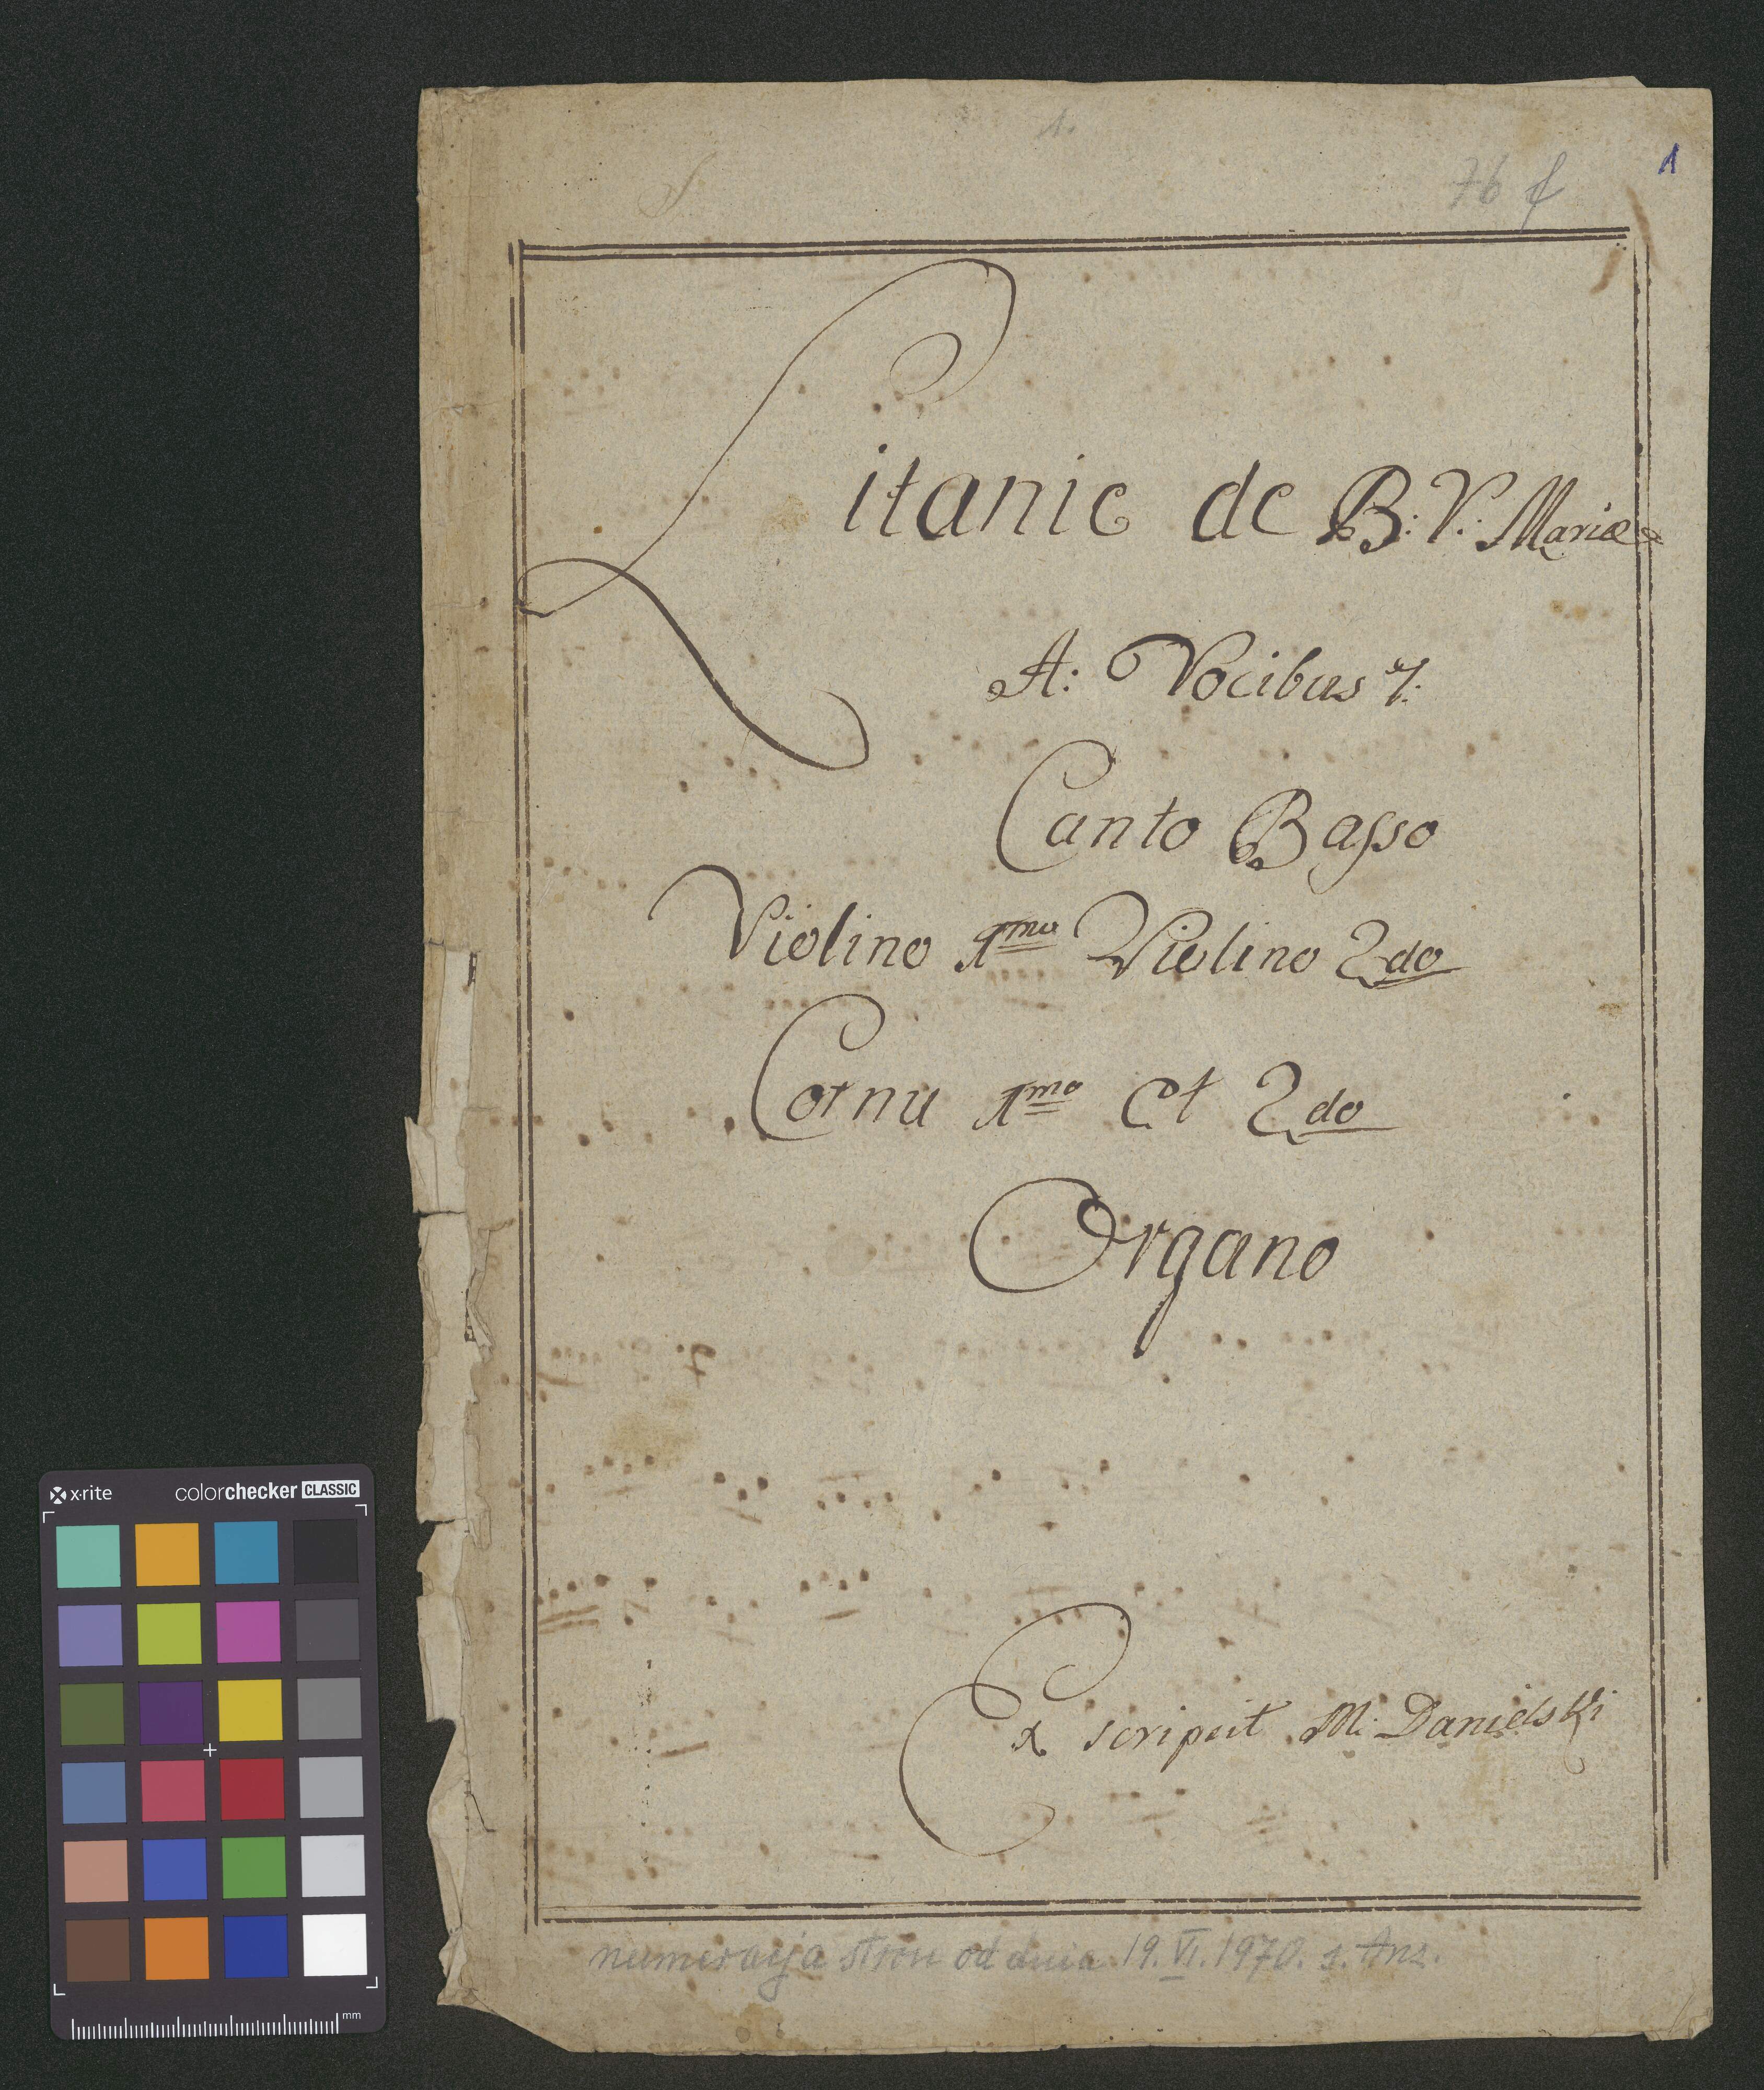 1.
76 f
1
Litanie de B: V: Mariæ
A: Vocibus 7:
Canto Basso
Violino 1mo Violino 2do
Cornu 1mo Et 2do
Organo
Ex scripsit M: Danielski
numeracja stron od dnia 19. VI. 1970. s. Anz.
x·rite
colorchecker CLASSIC
mm